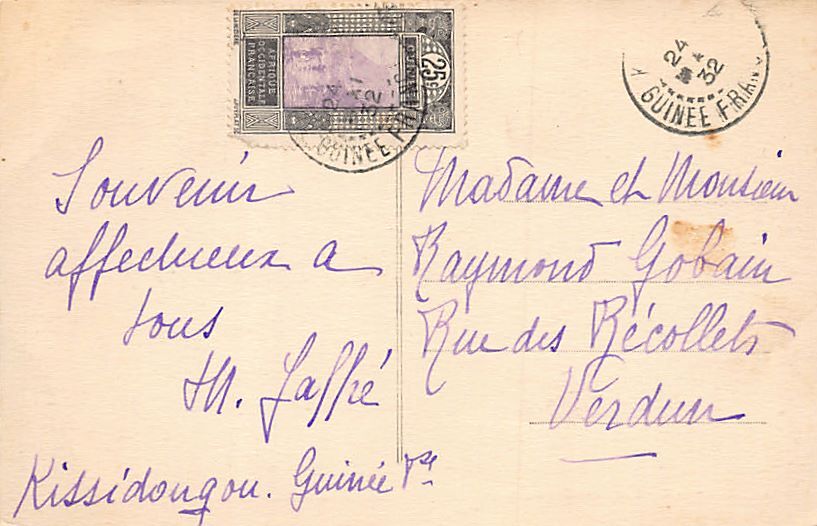 AFRIQUE
OCCIDENTALE
FRANÇAISE
25c
24
32
GUINÉE FRAN
24
32
GUINÉE FRAN
Souvenir
affectueux a
tous
Kissidougou. Guinée Fse
Madame et Monsieur
Raymond Gobain
Rue des Récollets
Verdun